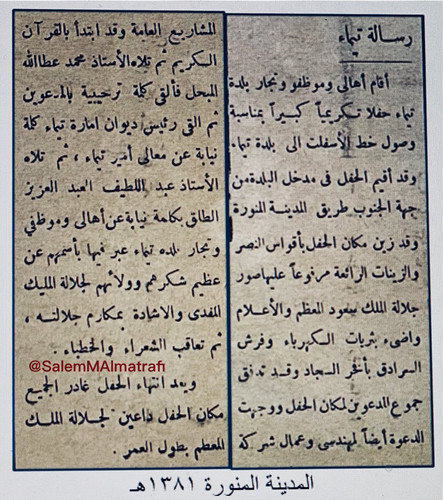 رسالة تيماء
أقام أهالي وموظفو وتجار بلدة
تيماء حفلا تكريمياً كبيراً بمناسبة
وصول خط الأسفلت الى بلدة تيماء
وقد أقيم الحفل فى مدخل البلدة من
جهة الجنوب طريق المدينة المنورة
وقد زين مكان الحفل بأقواس النصر
والزينات الرائعة مرفوعاً عليها صور
جلالة الملك سعود المعظم والأعلام
واضىء بثريات الكهرباء وفرش
السرادق بأفخر السجاد وقد تدفق
جموع المدعوين لمكان الحفل ووجهت
الدعوة أيضاً لمهندسى وعمال شركة
المشاريع العامة وقد ابتدأ بالقرآن
الكريم ثم تلاه الأستاذ محمد عطا الله
المبحل فألقى كلمة ترحيبية بالمدعوين
ثم القى رئيس ديوان امارة تيماء كلمة
نيابة عن معالى أمير تيماء ، ثم تلاه
الأستاذ عبد اللطيف العبد العزيز
الطلق بكلمة نيابة عن أهالى وموظفي
وتجار بلده تيماء عبر فيها بأسمهم عن
عظيم شكرهم وولائهم لجلالة الملك
المفدى والاشادة بمكارم جلالته ،
ثم تعاقب الشعراء والخطباء .
@SalemMAlmatrafi
وبعد انتهاء الحفل غادر الجميع
مكان الحفل داعين لجلالة الملك
المعظم بطول العمر .
المدينة المنورة ١٣٨١هـ